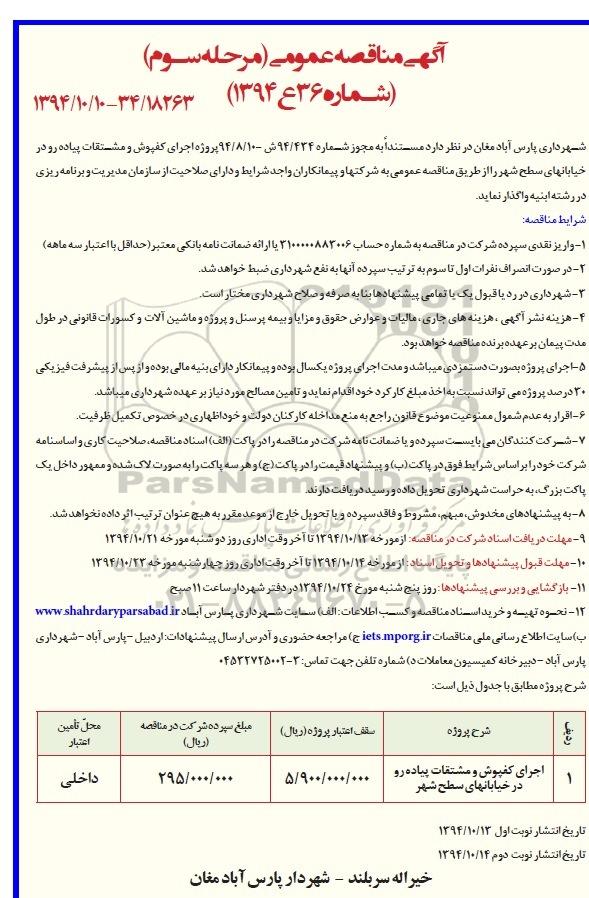 آگهی مناقصه عمومی (مرحله سوم)
(شماره ۳۶ع ۱۳۹۴)
۱۳۹۴/۱۰/۱۰-۳۴/۱۸۲۶۳
شهرداری پارس آباد مغان در نظر دارد مستنداً به مجوز شماره ۹۴/۴۳۴ش -۹۴/۸/۱۰پروژه اجرای کفپوش و مشتقات پیاده رو در
خیابانهای سطح شهر را از طریق مناقصه عمومی به شرکتها و پیمانکاران واجد شرایط و دارای صلاحیت از سازمان مدیریت و برنامه ریزی
در رشته ابنیه واگذار نماید.
شرایط مناقصه:
۱-واریز نقدی سپرده شرکت در مناقصه به شماره حساب ۳۱۰۰۰۰۰۸۸۳۰۰۶ یا ارائه ضمانت نامه بانکی معتبر(حداقل با اعتبار سه ماهه)
۲-در صورت انصراف نفرات اول تا سوم به ترتیب سپرده آنها به نفع شهرداری ضبط خواهد شد.
۳-شهرداری در رد یا قبول یک یا تمامی پیشنهادها بنا به صرفه و صلاح شهرداری مختار است.
۴-هزینه نشر آگهی ، هزینه های جاری ، مالیات و عوارض حقوق و مزایا و بیمه پرسنل و پروژه و ماشین آلات و کسورات قانونی در طول
مدت پیمان بر عهده برنده مناقصه خواهد بود.
۵-اجرای پروژه بصورت دستمزدی میباشد و مدت اجرای پروژه یکسال بوده و پیمانکار دارای بنیه مالی بوده و از پس از پیشرفت فیزیکی
۳۰درصد پروژه می تواند نسبت به اخذ مبلغ کارکرد خود اقدام نماید و تامین مصالح مورد نیاز بر عهده شهرداری میباشد.
۶-اقرار به عدم شمول ممنوعیت موضوع قانون راجع به منع مداخله کارکنان دولت و خوداظهاری در خصوص تکمیل ظرفیت.
۷-شرکت کنندگان می بایست سپرده و یا ضمانت نامه شرکت در مناقصه را در پاکت (الف) اسناد مناقصه، صلاحیت کاری و اساسنامه
شرکت خود را بر اساس شرایط فوق در پاکت (ب) و پیشنهاد قیمت را در پاکت (ج) و هر سه پاکت را به صورت لاک شده و ممهور داخل یک
پاکت بزرگ، به حراست شهرداری تحویل داده و رسید دریافت دارند.
۸-به پیشنهادهای مخدوش، مبهم، مشروط و فاقد سپرده و یا تحویل خارج از موعد مقرر به هیچ عنوان ترتیب اثر داده نخواهد شد.
۹-مهلت دریافت اسناد شرکت در مناقصه: از مورخه ۱۳۹۴/۱۰/۱۳ تا آخر وقت اداری روز دو شنبه مورخه ۱۳۹۴/۱۰/۲۱
۱۰-مهلت قبول پیشنهادها و تحویل اسناد: از مورخه ۱۳۹۴/۱۰/۱۴ تا آخر وقت اداری روز چهارشنبه مورخه ۱۳۹۴/۱۰/۲۳
۱۱-بازگشایی و بررسی پیشنهادها: روز پنج شنبه مورخ ۱۳۹۴/۱۰/۲۴در دفتر شهردار ساعت ۱۱صبح
۱۲-نحوه تهیه و خرید اسناد مناقصه و کسب اطلاعات: الف) سایت شهرداری پارس آباد www.shahrdaryparsabad.ir
ب)سایت اطلاع رسانی ملی مناقصات iets.mporg.ir ج) مراجعه حضوری و آدرس ارسال پیشنهادات: اردبیل -پارس آباد -شهرداری
پارس آباد -دبیرخانه کمیسیون معاملات د) شماره تلفن جهت تماس: ۳-۰۴۵۳۲۷۲۵۰۰۲
شرح پروژه مطابق با جدول ذیل است:
ردیف شرح پروژه سقف اعتبار پروژه (ریال) مبلغ سپرده شرکت در مناقصه (ریال) محلّ تأمین اعتبار
۱ اجرای کفپوش و مشتقات پیاده رو در خیابانهای سطح شهر ۵/۹۰۰/۰۰۰/۰۰۰ ۲۹۵/۰۰۰/۰۰۰ داخلی
تاریخ انتشار نوبت اول ۱۳۹۴/۱۰/۱۳
تاریخ انتشار نوبت دوم ۱۳۹۴/۱۰/۱۴
خیراله سربلند - شهردار پارس آباد مغان
ParsNamadData